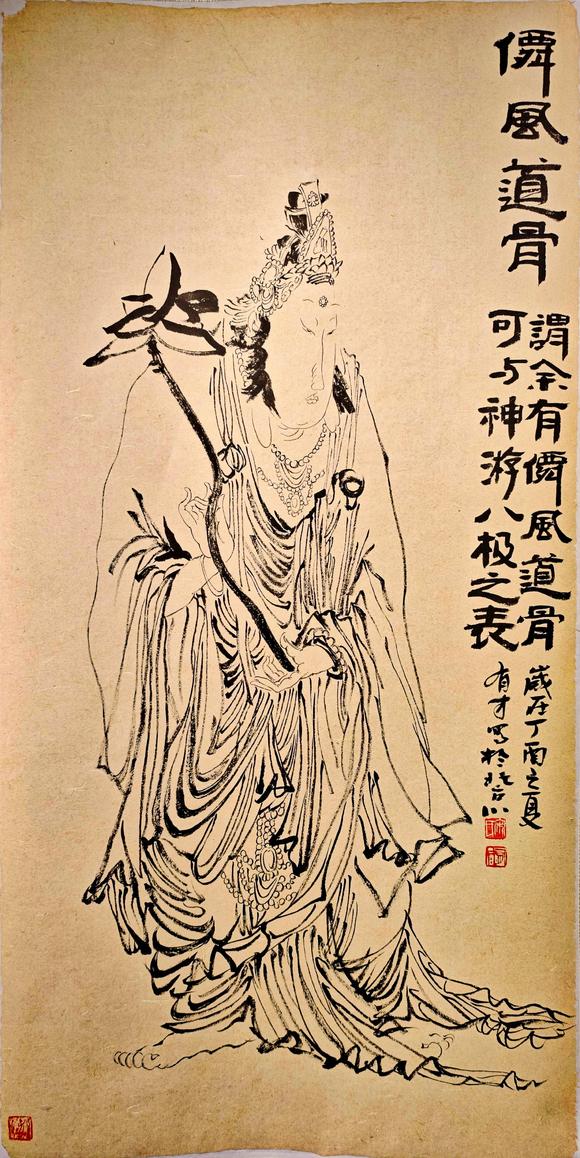 僊風道骨
謂余有僊風道骨
可与神游八极之表
歲在丁酉之夏
有才写於北京